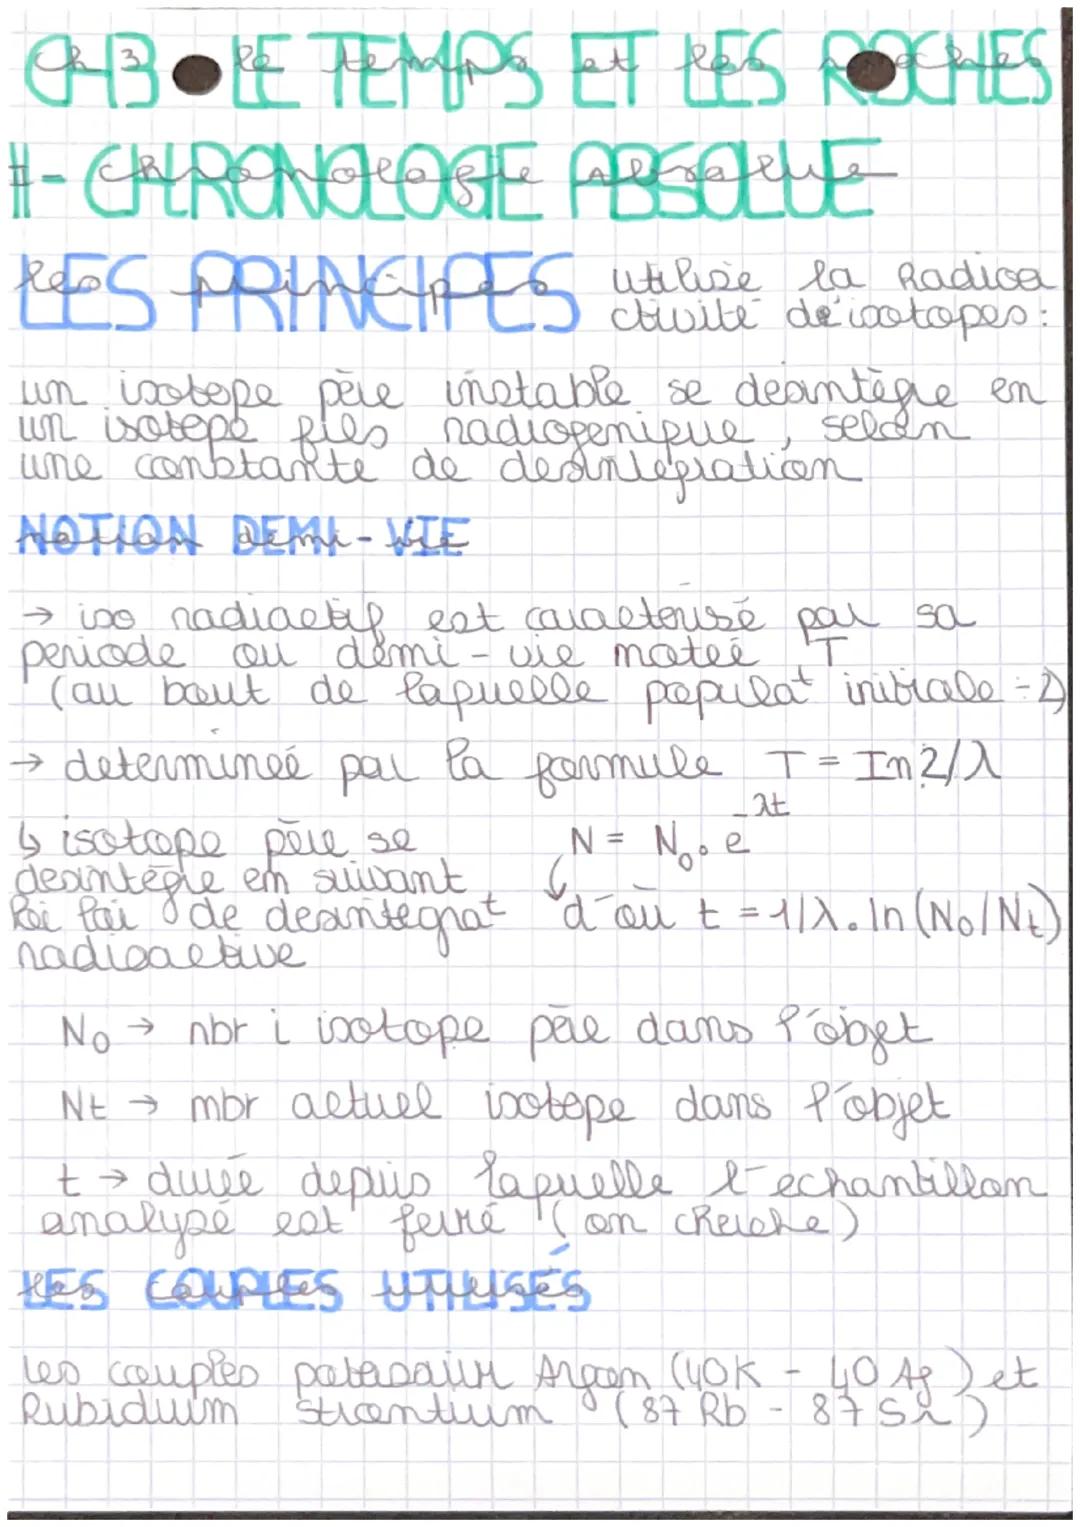 CH3 LE TEMPS ET LES ROCHES
II - CHRONOLOGIE ABSOLUE
LES PRINCIPES utilise la Radioa
ctivité de isotopes :
un isotope père instable se desintègre en
un isotope fils radiogenique, selon
une constante de desintegration
NOTION DEMI-VIE
→ iso radiactif est caracterisé par sa
periode ou demi-vie notée T
(au bout de laquelle populat° initiale ÷2)
→ determineé par la formule T = In2/λ
↳ isotope père se N = N₀. e^-λt
desintègre en suivant
loi de desintegrat° d'où t = 1/λ. ln (N₀/Nt)
radioactive
N₀ → nbr i isotope père dans l'objet
Nt → nbr actuel isotope dans l'objet
t → durée depuis laquelle l'echantillon
analysé est fermé (on cherche)
LES COUPLES UTILISÉS
les couples potassium Argon (40K - 40 Ag) et
Rubiduim Strontium (87 Rb - 87 Sr)